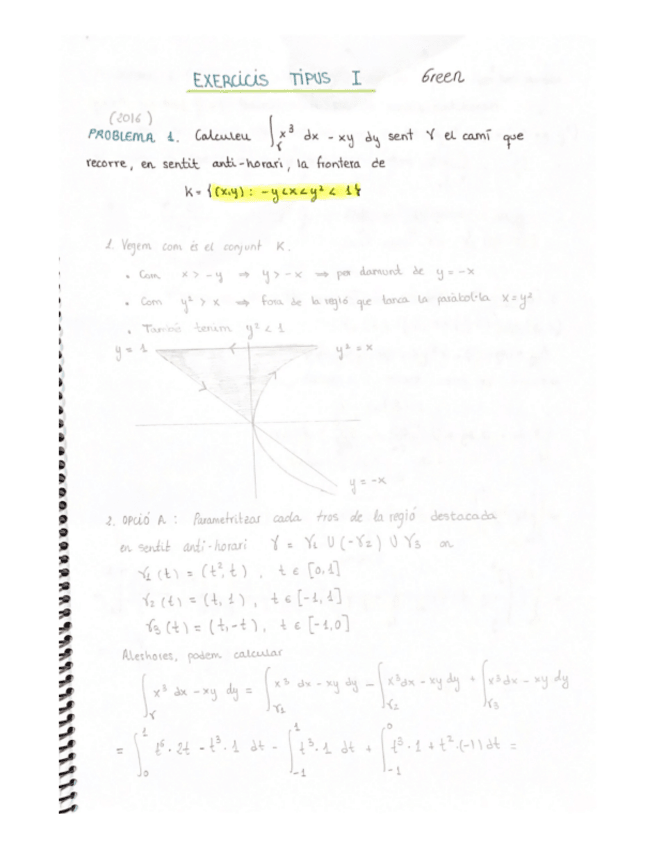 EXERCICIS TIPUS I Green
(2016)
PROBLEMA 1. Calculeu ∫γ x³ dx - xy dy sent γ el camí que
recorre, en sentit anti-horari, la frontera de
K = {(x,y) : -y < x < y² < 1}
1. Vegem com és el conjunt K.
• Com x > -y ⇒ y > -x ⇒ per damunt de y = -x
• Com y² > x ⇒ fora de la regió que tanca la paràbol·la x = y²
• També tenim y² < 1
y = 1 y² = x
y = -x
2. OPCIÓ A : Parametritzar cada tros de la regió destacada
en sentit anti-horari γ = γ1 ∪ (-γ2) ∪ γ3 on
γ1 (t) = (t², t) , t ∈ [0,1]
γ2 (t) = (t, 1) , t ∈ [-1,1]
γ3 (t) = (t, -t), t ∈ [-1,0]
Aleshores, podem calcular
∫γ x³ dx - xy dy = ∫γ1 x³ dx - xy dy - ∫γ2 x³ dx - xy dy + ∫γ3 x³ dx - xy dy
= ∫₀¹ t⁶ · 2t - t³ · 1 dt - ∫₋₁¹ t³ · 1 dt + ∫₋₁⁰ t³ · 1 + t² · (-1) dt =